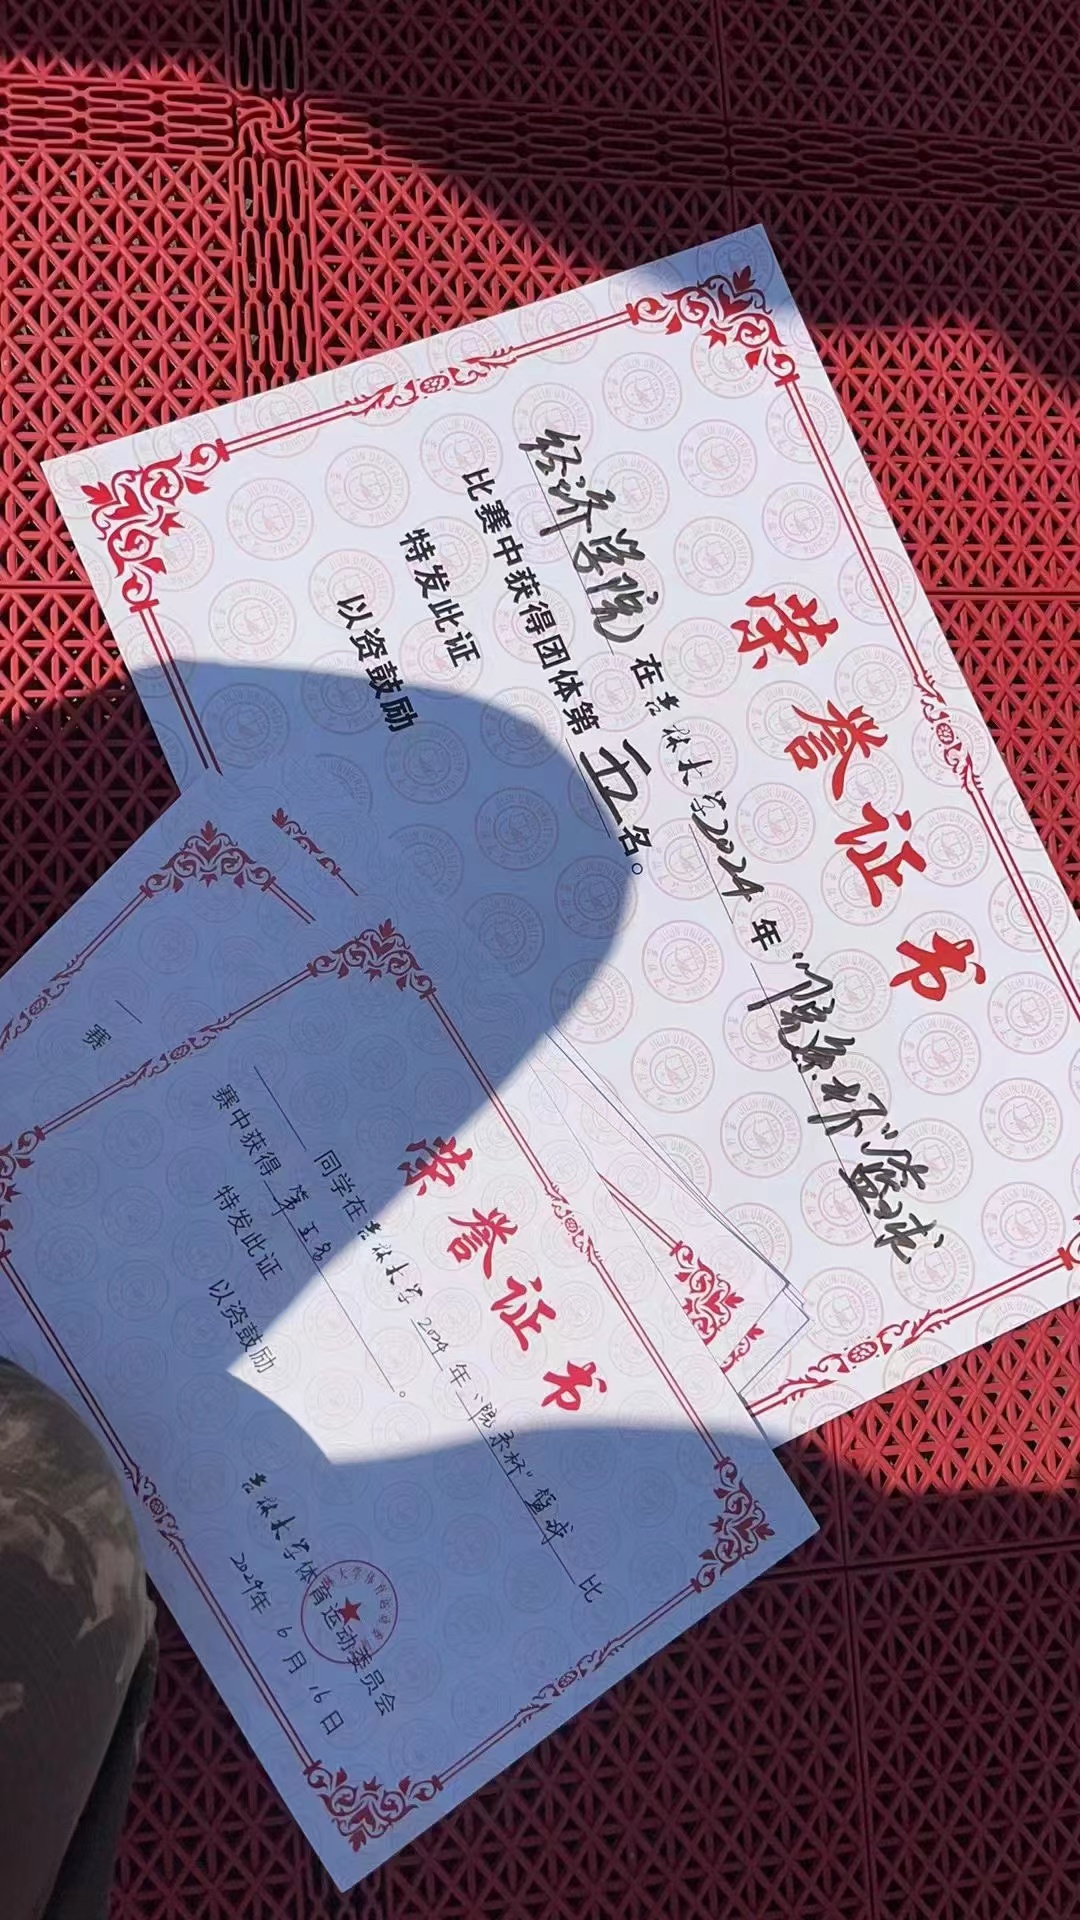 荣誉证书
经济学院 在吉林大学2024年“院系杯”篮球
比赛中获得团体第五名。
特发此证
以资鼓励
荣誉证书
同学在吉林大学2024年“院系杯”篮球比
赛中获得第五名。
特发此证
以资鼓励
吉林大学体育运动委员会
2024年6月16日
赛